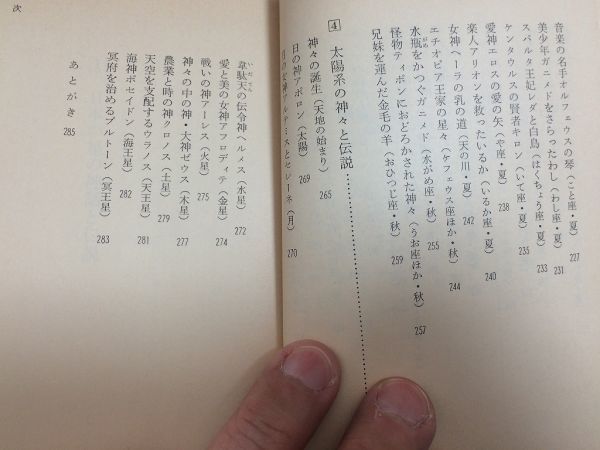 音楽の名手オルフェウスの琴（こと座・夏） 227
美少年ガニメドをさらったわし（わし座・夏） 231
スパルタ王妃レダと白鳥（はくちょう座・夏） 233
ケンタウルスの賢者キロン（いて座・夏） 235
愛神エロスの愛の矢（や座・夏） 238
楽人アリオンを救ったいるか（いるか座・夏） 240
女神ヘーラの乳の道（天の川・夏） 242
エチオピア王家の星々（ケフェウス座ほか・秋） 244
水瓶をかつぐガニメド（水がめ座・秋） 255
怪物ティポンにおどろかされた神々（うお座ほか・秋） 257
兄妹を運んだ金毛の羊（おひつじ座・秋） 259
4 太陽系の神々と伝説
神々の誕生（天地の始まり） 265
日の神アポロン（太陽） 269
月の女神アルテミスとセレーネ（月） 270
次
韋駄天の伝令神ヘルメス（水星） 272
愛と美の女神アフロディテ（金星） 274
戦いの神アーレス（火星） 275
神々の中の神・大神ゼウス（木星） 277
農業と時の神クロノス（土星） 279
天空を支配するウラノス（天王星） 281
海神ポセイドン（海王星） 282
冥府を治めるプルトーン（冥王星） 283
あとがき 285